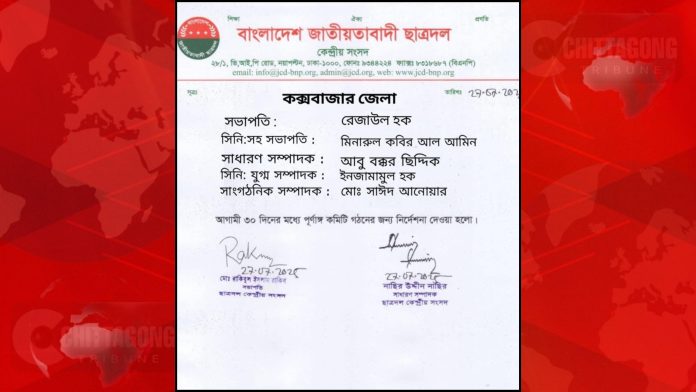 শিক্ষা ঐক্য প্রগতি
বাংলাদেশ জাতীয়তাবাদী ছাত্রদল
কেন্দ্রীয় সংসদ
২৮/১, ভি,আই,পি রোড, নয়াপল্টন, ঢাকা-১০০০, ফোনঃ ৯৩৪৪২২৪ ফ্যাক্সঃ ৮৩১৮৬৮৭ (বিএনপি)
email: info@jcd-bnp.org, admin@jcd.org, web: www.jcd-bnp.org
সূত্রঃ তারিখঃ ২৭-০৭-২০২৫
কক্সবাজার জেলা
সভাপতি : রেজাউল হক
সিনি:সহ সভাপতি : মিনারুল কবির আল আমিন
সাধারণ সম্পাদক : আবু বক্কর ছিদ্দিক
সিনি: যুগ্ম সম্পাদক : ইনজামামুল হক
সাংগঠনিক সম্পাদক : মোঃ সাঈদ আনোয়ার
আগামী ৩০ দিনের মধ্যে পূর্ণাঙ্গ কমিটি গঠনের জন্য নির্দেশনা দেওয়া হলো।
২৭-০৭-২০২৫ ২৭-০৭-২০২৫
মোঃ রাকিবুল ইসলাম রাকিব নাছির উদ্দীন নাছির
সভাপতি সাধারণ সম্পাদক
ছাত্রদল কেন্দ্রীয় সংসদ ছাত্রদল কেন্দ্রীয় সংসদ
CHITTAGONG
TRIBUNE
CHITTAGONG
TRIBUNE